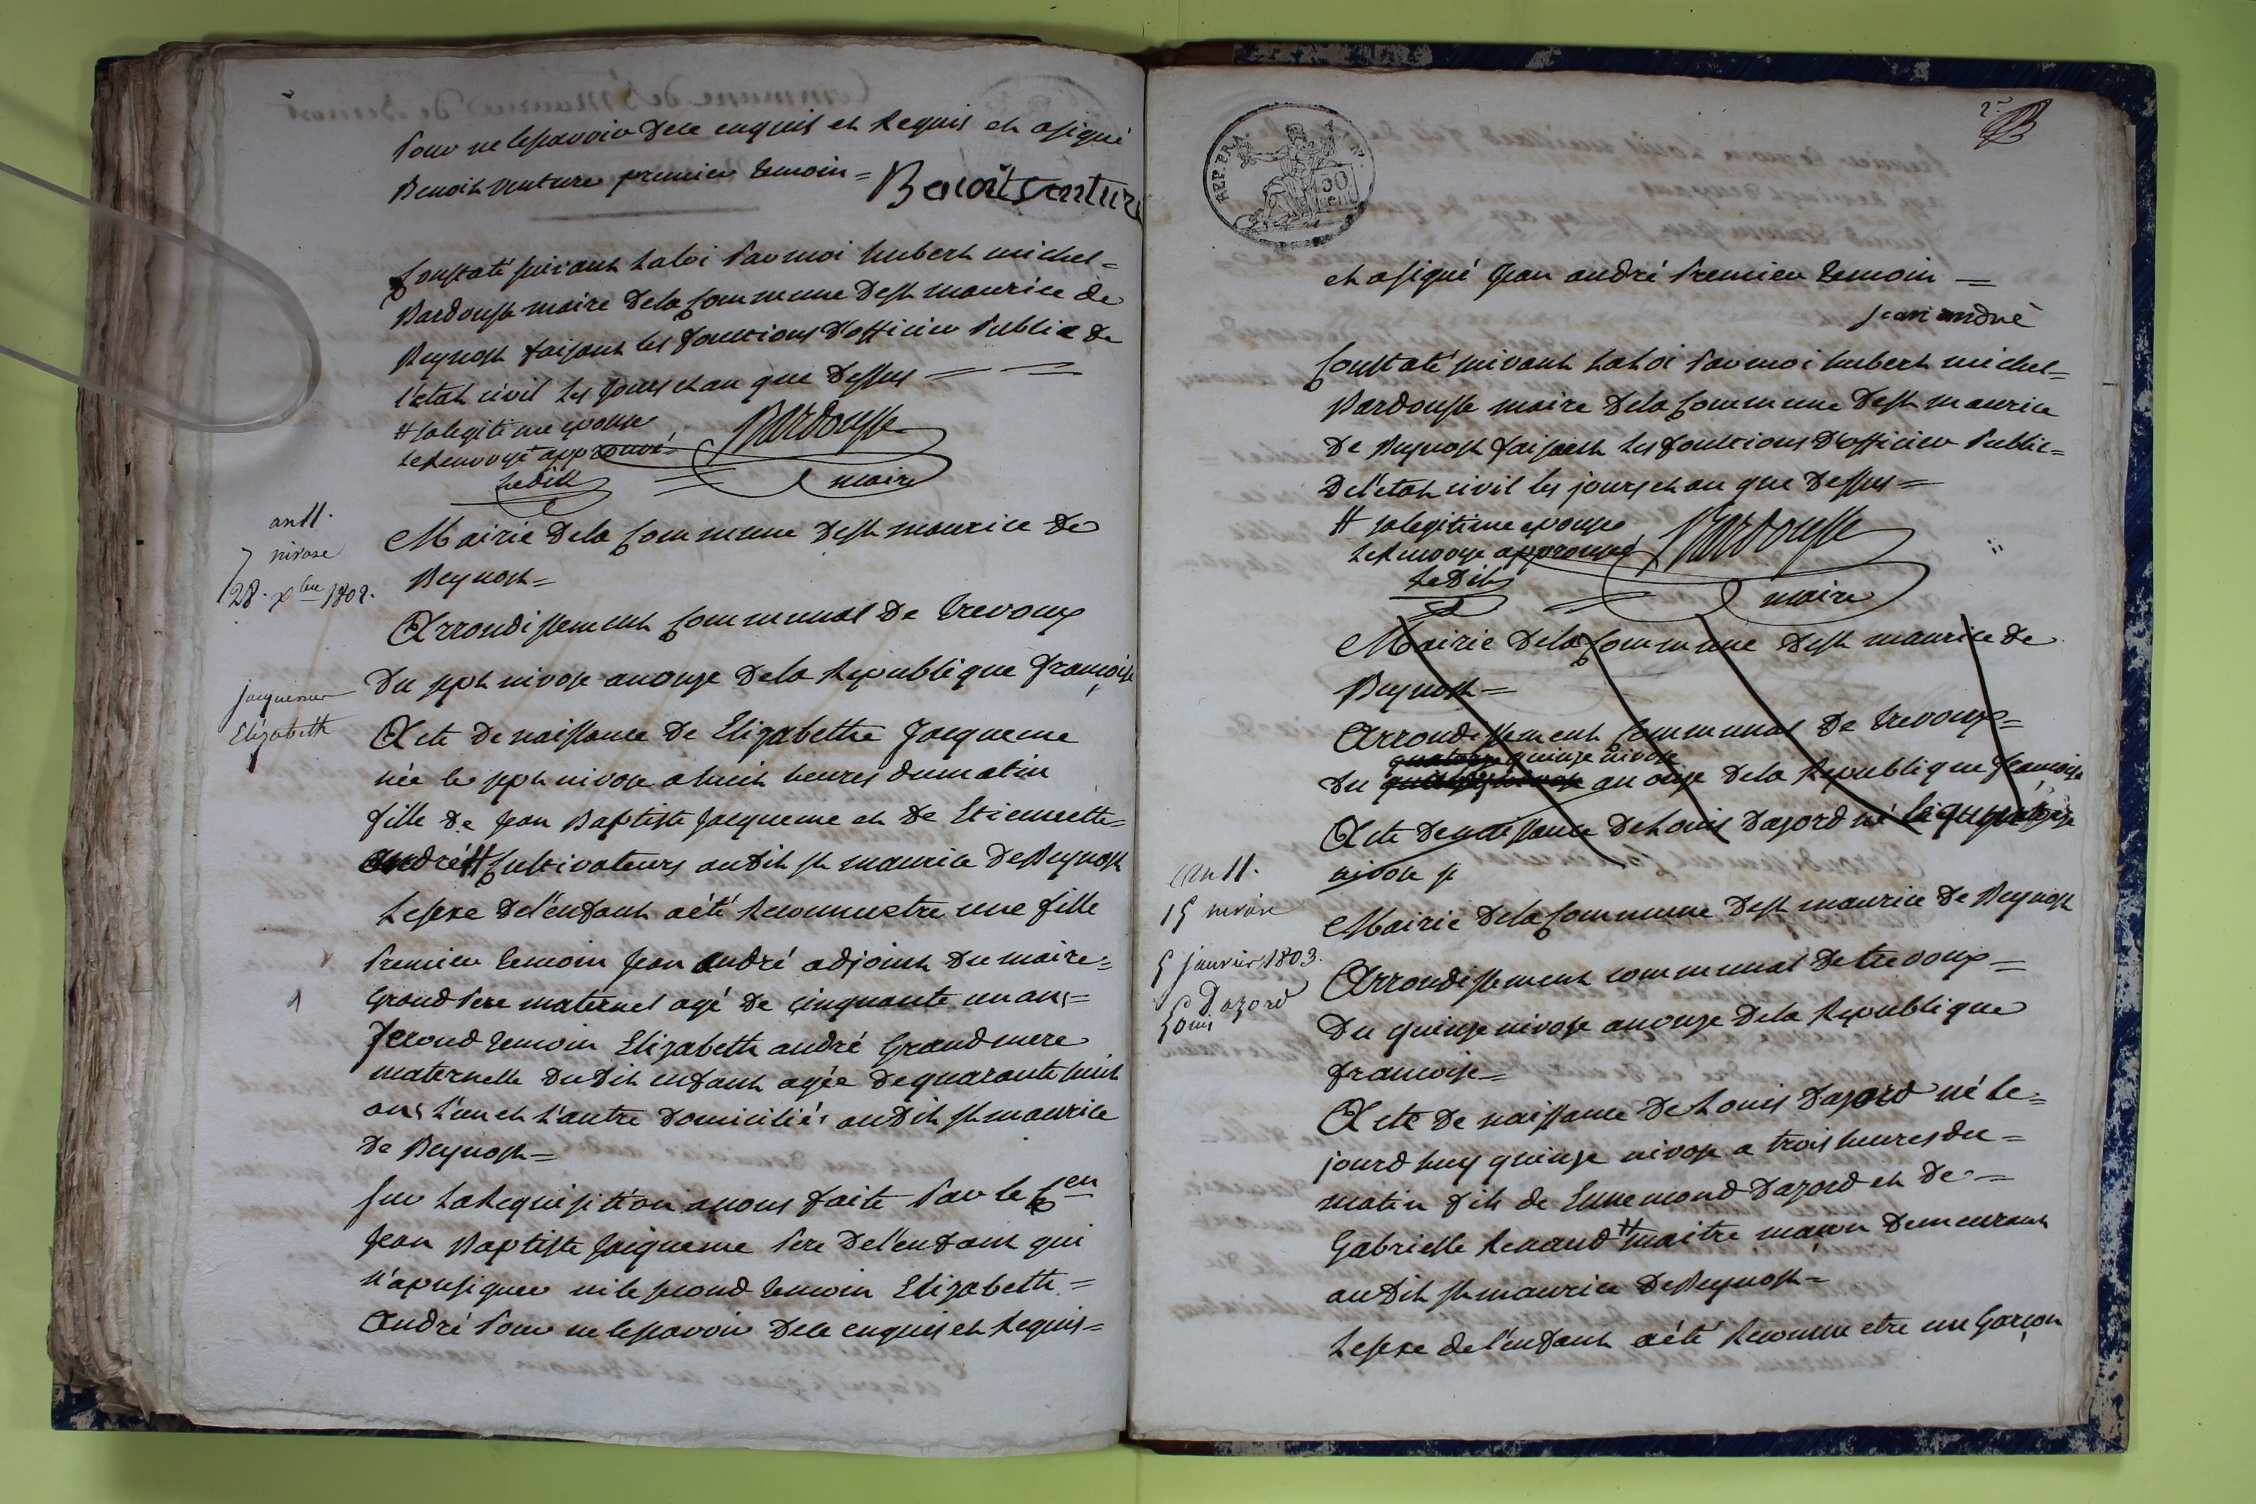 Pour ne le scavoir de ce enquis et Requis et a signé
Benoit venture premier temoin = Benoit venture
Constaté suivant la loi Par moi hubert michel =
Bardousse maire de la Commune de st maurice de
Beynost faisant les fonctions d'officier Public de
l'etat civil les jours et an que dessus = =
# sa legitime epouse
le Renvoye approuvé Bardousse
Ledit maire
an 11.
7 nivose
28. xbre 1802.
Mairie de la Commune de st maurice de
Beynost =
Arrondissement Communal de trevoux
Jacqueme
Elizabeth
Du sept nivose an onze de la Republique francoise
Acte de naissance de Elizabethe Jacqueme
née le sept nivose a huit heures du matin
fille de Jean Baptiste Jacqueme et de Etiennette =
André # Cultivateurs au dit st maurice de Beynost
Le sexe de l'enfant a été Reconnu etre une fille
Premier temoin Jean André adjoint du maire =
1
Grand Pere maternel agé de cinquante un ans =
Second temoin Elizabeth andré Grand mere
maternelle du dit enfant agée de quarante huit
ans l'un et l'autre domiciliés au dit st maurice
de Beynost =
Sur la Requisition a nous faite Par le Cen
Jean Baptiste Jacqueme Pere de l'enfant qui
n'a pu signer ni le second temoin Elizabeth =
André Pour ne le scavoir de ce enquis et Requis =
REP. FRA.
50
cen
2e
et a signé Jean andré Premier temoin =
jean andré
Constaté suivant la Loi Par moi hubert michel =
Bardousse maire de la Commune de st maurice
de Beynost faisant les fonctions d'officier Public =
de l'etat civil les jours et an que dessus =
# sa legitime epouse
le Renvoye approuvé Bardousse
Ledit maire
Mairie de la Commune de st maurice de
Beynost =
Arrondissement Communal de trevoux =
quatorze quinze nivose
Du an onze de la Republique francoise
Acte de naissance de Louis Dazord né
nivose
an 11.
15 nivose
5 janvier 1803.
Dazord
Louis
Mairie de la Commune de st maurice de Beynost
Arrondissement communal de trevoux =
Du quinze nivose an onze de la Republique
francoise =
Acte de naissance de Louis Dazord né le =
jourd huy quinze nivose a trois heures du =
matin fils de Ennemond Dazord et de =
Gabrielle Renaud # maitre maçon demeurant
au dit st maurice de Beynost =
Le sexe de l'enfant a été Reconnu etre un Garçon